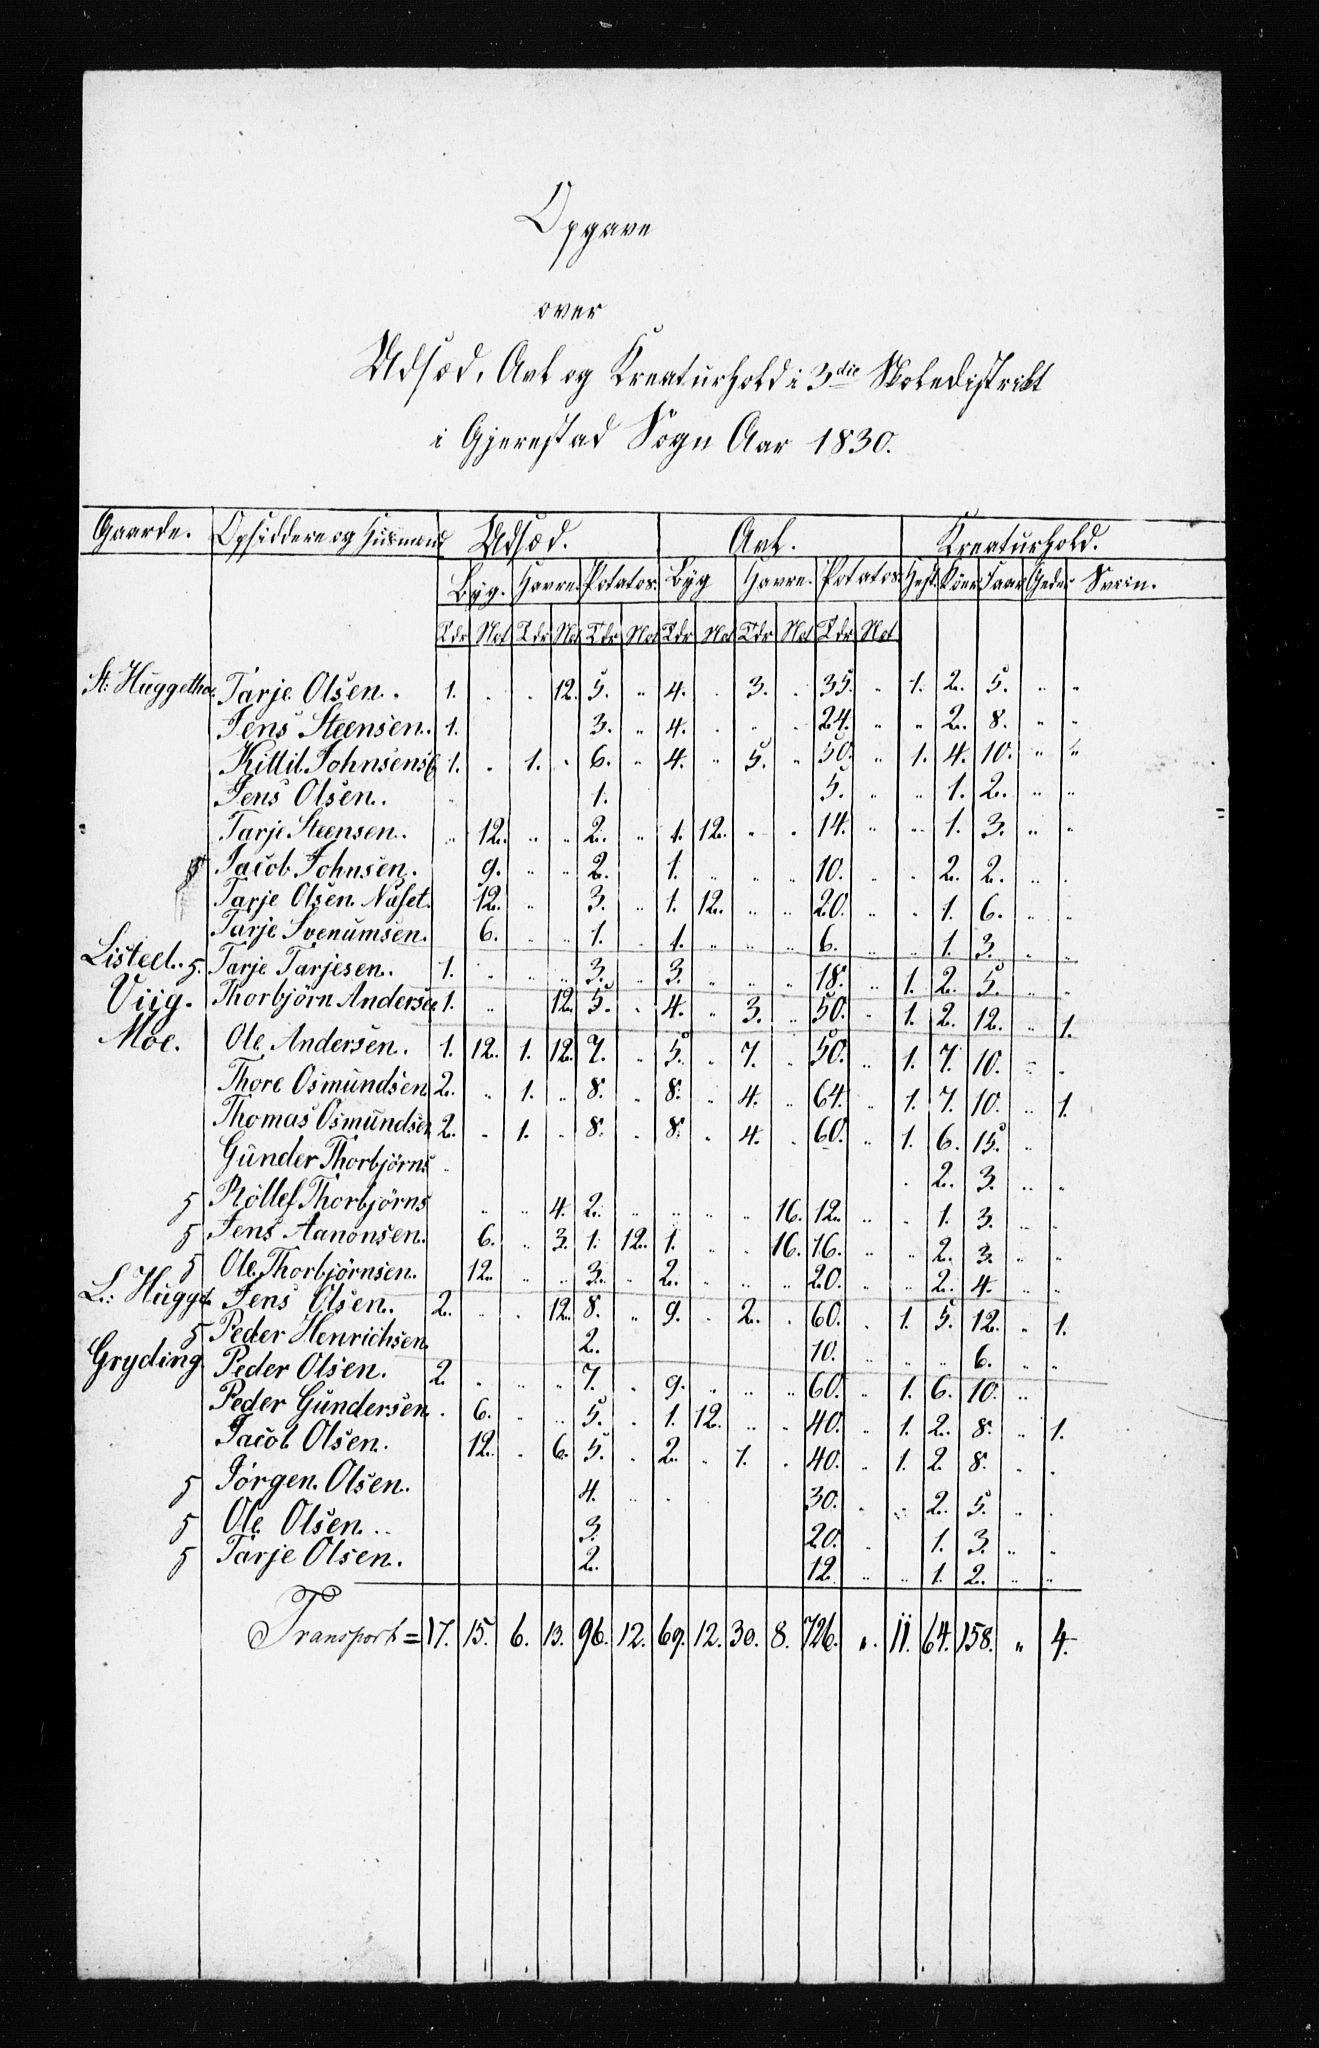 Opgave
over
Udsæd, Avl og Kreaturhold i 3die Rodedistrikt
i Gjerrestad Sogn Aar 1830.
Gaarde. Opsiddere og Husmænd Udsæd. Avl. Kreaturhold.
Byg. Havre. Potatos. Byg Havre. Potatos. Hest. Köer Faar Geder Sviin.
Tdr Tdr Tdr Tdr Tdr Tdr
St: Huggetho. Tarje Olsen. 1. . . 12. 5. " 4. . 3. . 35. " 1. 2. 5. " "
Jens Steensen. 1. 3. " 4. . . . 24. " " 2. 8. " "
Kittil Johnsens 1. . 1. " 6. " 4. " 5. " 50. " 1. 4. 10. " "
Jens Olsen. " 1. 5. " " 1. 2. " "
Tarje Steensen. " 12. " " 2. " 1. 12. " . 14. " " 1. 3. " "
5 Jacob Johnsen. 9. " " 2. 1. " " " 10. . . 2. 2. " .
Tarje Olsen Naset. 12. " 3. " 1. 12. " " 20. " . 1. 6. . "
Tarje Svenumsen. 6. " " 1. . 1. " " " 6. " " 1. 3. . "
Listeel. 5. Tarje Tarjesen. 1. " " " 3. " 3. " " " 18. " 1. 2. 5. " "
Viig. Thorbjörn Andersen 1. " 12. 5. . 4. " 3. . 50. " 1. 2. 12. " 1.
Moe. Ole Andersen. 1. 12. 1. 12. 7. " 5. " 7. . 50. " 1. 7. 10. " .
Thore Osmundsen 2. " 1. " 8. " 8. " 4. " 64. " 1. 7. 10. " 1.
Thomas Osmundsen 2. " 1. " 8. . 8. " 4. . 60. " 1. 6. 15. "
Gunder Thorbjörns " . 2. 3. " "
5 Röllef Thorbjörns " " 4. 2. " " " " 16. 12. " . 1. 3. " "
5 Jens Aanonsen. 6. " 3. 1. 12. 1. " " 16. 16. " " 2. 3. " "
5 Ole Thorbjörnsen. 12. " " 3. " 2. " " " 20. " " 2. 4. " "
L: Huggt. Jens Olsen. 2. . . 12. 8. " 9. . 2. . 60. . 1. 5. 12. . 1.
5 Peder Henrichsen 2. 10. " " " 6. " "
Gryding. Peder Olsen. 2. " " " 7. . 9. " " " 60. " 1. 6. 10. "
Peder Gundersen . 6. " " 5. . 1. 12. " . 40. " 1. 2. 8. " 1.
Jacob Olsen. 12. . 6. 5. " 2. " 1. . 40. " 1. 2. 8. . .
5 Jörgen Olsen. 4. " . . 30. " " 2. 5. " .
5 Ole Olsen. 3. 20. " 1. 3. " "
5 Tarje Olsen. 2. 12. " " 1. 2. " "
Transport = 17. 15. 6. 13. 96. 12. 69. 12. 30. 8. 726. " 11. 64. 158. " 4.